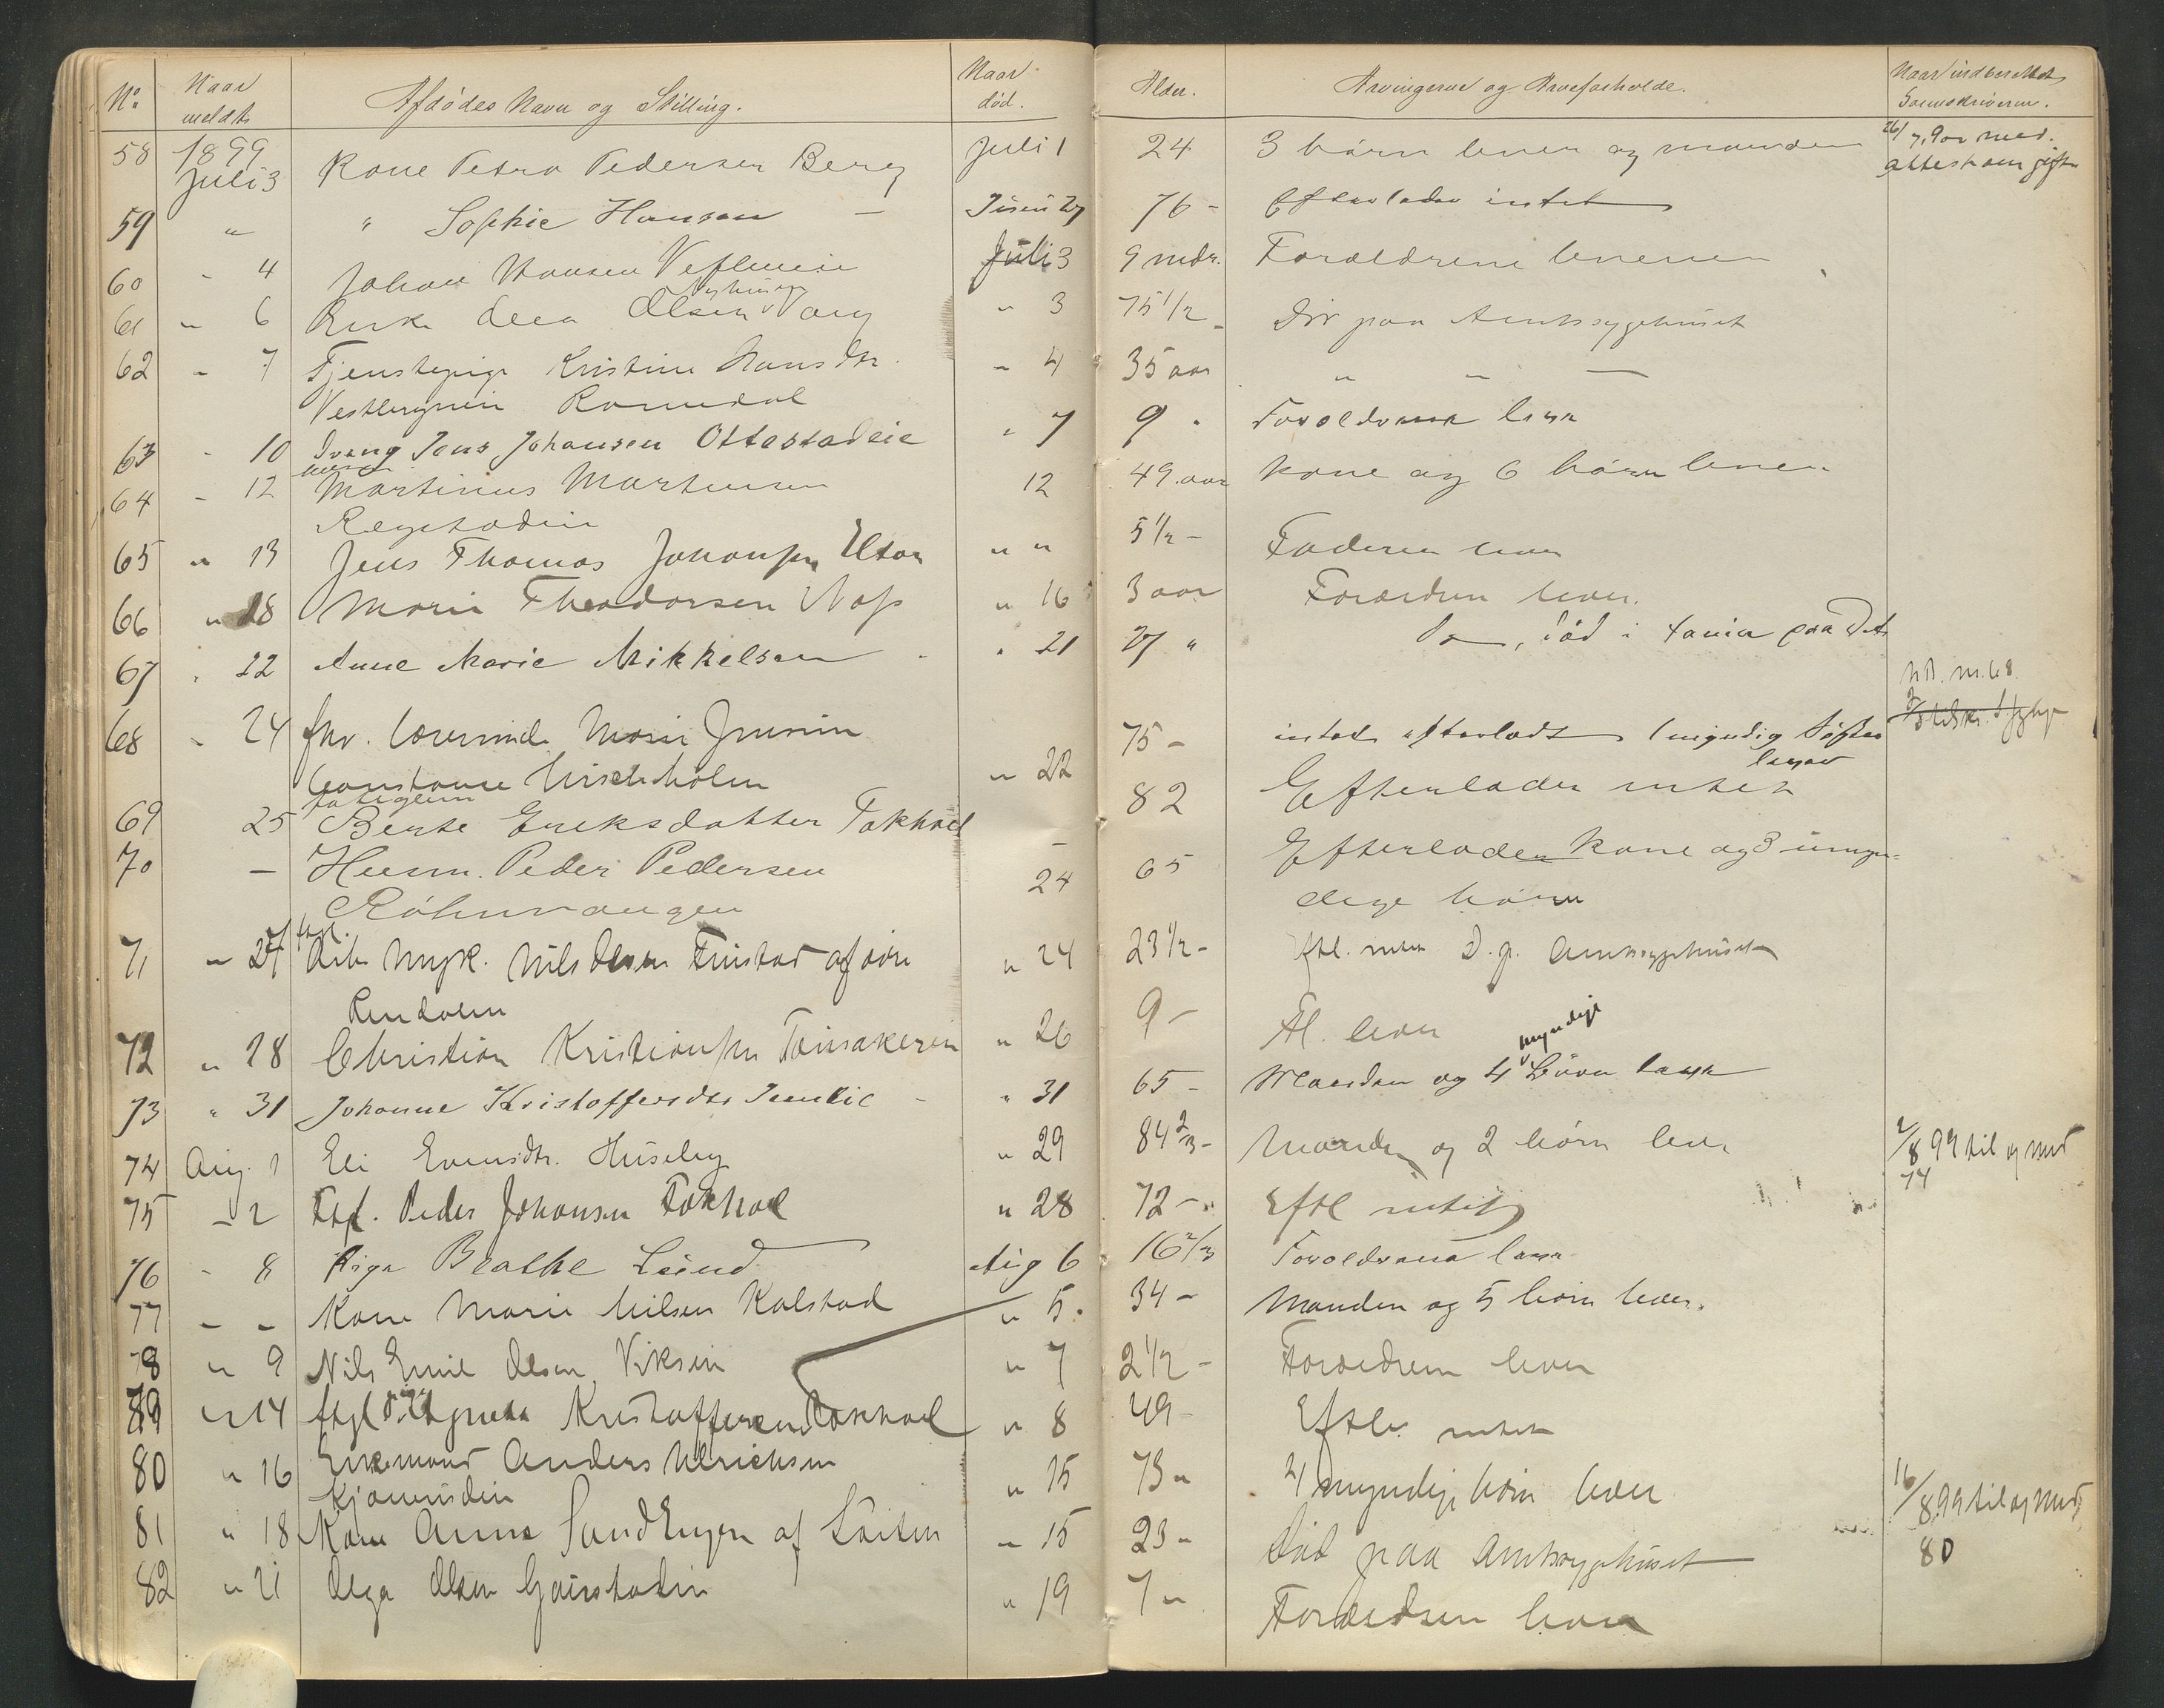 No. Naar meldt. Afdødes Navn og Stilling. Naar død. Alder. Arvingerne og Arveforholde. Naar indberettet Sorenskriveren.
58 1899 Juli 3 Kone Petra Pedersen Berg Juli 1 24 3 børn lever og manden 26/7. 9
attest om gifte
59 " " Sophie Hansen — Juni 27 76 - Efterlader intet
60 - 4 Johan Hansen Juli 3 9 mdr. Forældrene lever
61 " 6 Enke Olea Olsen " 3 75 1/2 - Død paa Amtssygehuset
62 - 7 Tjenstepige Kristine Hansdtr. - 4 35 aar " - —
Romedal
63 - 10 Svang Jens Johansen Ottestadeie " 7 9 - Forældrene lever
64 - 12 Martinus Martinsen 12 49. aar Kone og 6 børn lever
65 " 13 Jens Thomas Johansen " " 5 1/2 - Faderen lever
66 " 18 Marie Theodorsen " 16 3 aar Forældren lever.
67 " 22 Anne Marie Mikkelsen - " 21 27 " Do, død i
NB. nr. 68.
68 - 24 fhv. Lærerinde Marie 75 - intet efterladt 1 myndig søster
lever
Constance " 22
69 25 Berte Eriksdatter Fokhol 82 Efterlader intet
70 — Husm. Peder Pedersen 24 65 Efterlader Kone og 3 umyn-
dige børn
71 " 27 Nils Olsen Finstad af øvre " 24 23 1/2 - Eftl. intet D. p. Amtssygehuset
Rendalen
72 " 28 Christian Kristiansen " 26 9 - Fl. lever
myndige
73 " 31 Johanne Kristoffersdtr - " 31 65 - Manden og 4 Børn lever
74 Aug. 1 Eli Evensdtr. Huseby " 29 84 2/3 - Manden og 2 børn lever 2/8 99 til og med
74
75 - 2 Peder Johansen Fokhol " 28 72 - Eftl intet
76 - 8 Pige Beathe Lund Aug 6 16 2/3 Forældrene lever
77 - - Kone Marie Nilsen Kolstad " 5. 34 - Manden og 5 børn lever.
78 " 9 Nils Emil Olsen Viksein " 7 2 1/2 - Forældren lever
79 " 14 Kristoffersen Fokhol " 8 49 - Eftl. intet
80 " 16 Enkemand Anders Ulrichsen " 15 73 " 4 myndige børn lever 16/8 99 til og med
80
81 " 18 Kone Anne Sandengen af Løiten " 15 23 - Død paa Amtssygehuset
82 " 21 Olga Olsen " 19 7 " Forældren lever